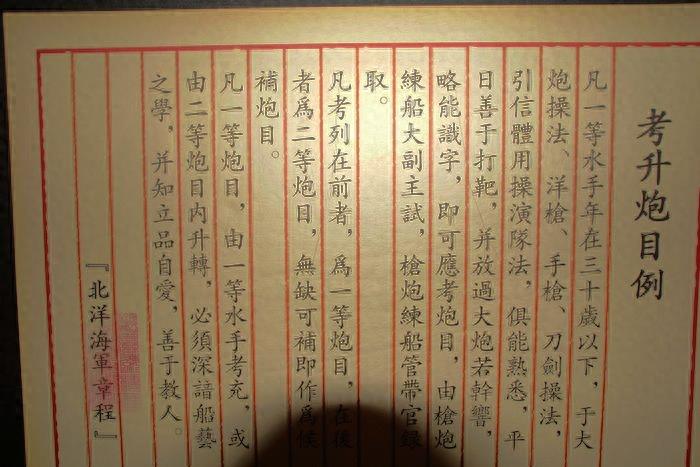 考升炮目例
凡一等水手年在三十歲以下，于大
炮操法、洋槍、手槍、刀劍操法，
引信體用操演隊法，俱能熟悉，平
日善于打靶，并放過大炮若幹響，
略能識字，即可應考炮目，由槍炮
練船大副主試，槍炮練船管帶官録
取。
凡考列在前者，爲一等炮目，在後
者爲二等炮目，無缺可補即作爲候
補炮目。
凡一等炮目，由一等水手考充，或
由二等炮目内升轉，必須深諳船藝
之學，并知立品自愛，善于教人。
『北洋海軍章程』